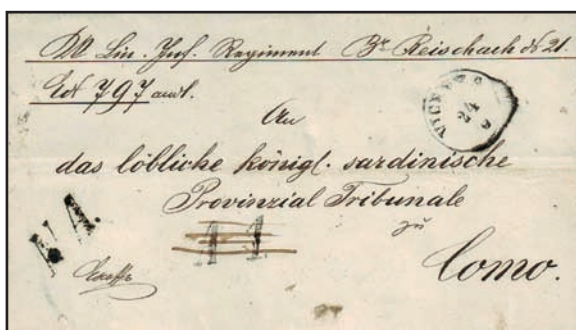 Lin. Inf. Regiment Br. Reischach № 21.
797 amtl.
VICENZA
24
6
An
das löbliche königl. sardinische
Provinzial Tribunale
zu
Como.
11